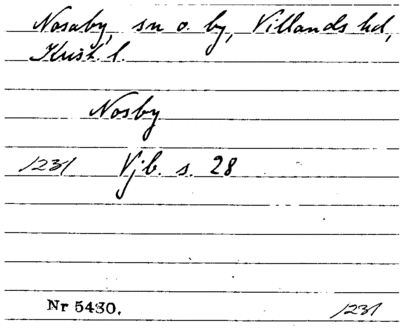 Nosaby, sn o. by, Villands hd,
Krist. l.
Nosby
1231 Vjb. s. 28
Nr 5430. 1231